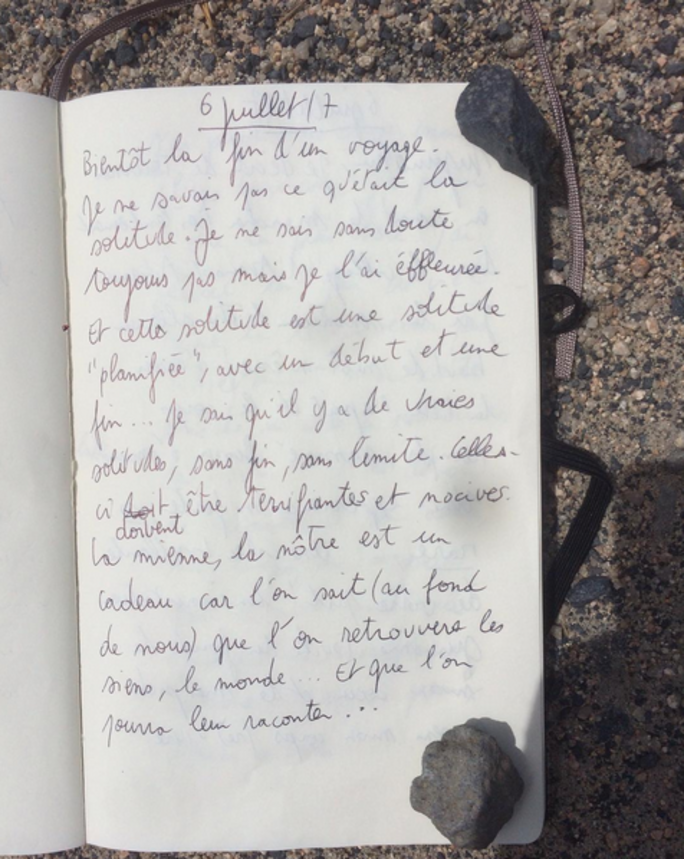 6 juillet 17
Bientôt la fin d'un voyage.
Je ne savais pas ce qu'était la
solitude. Je ne sais sans doute
toujours pas mais je l'ai éffleurée.
Et cette solitude est une solitude
"planifiée", avec un début et une
fin... Je sais qu'il y a de vraies
solitudes, sans fin, sans limite. Celles-
ci doit être terrifiantes et nocives.
doivent
La mienne, la nôtre est un
cadeau car l'on sait (au fond
de nous) que l'on retrouvera les
siens, le monde... Et que l'on
pourra leur raconter...